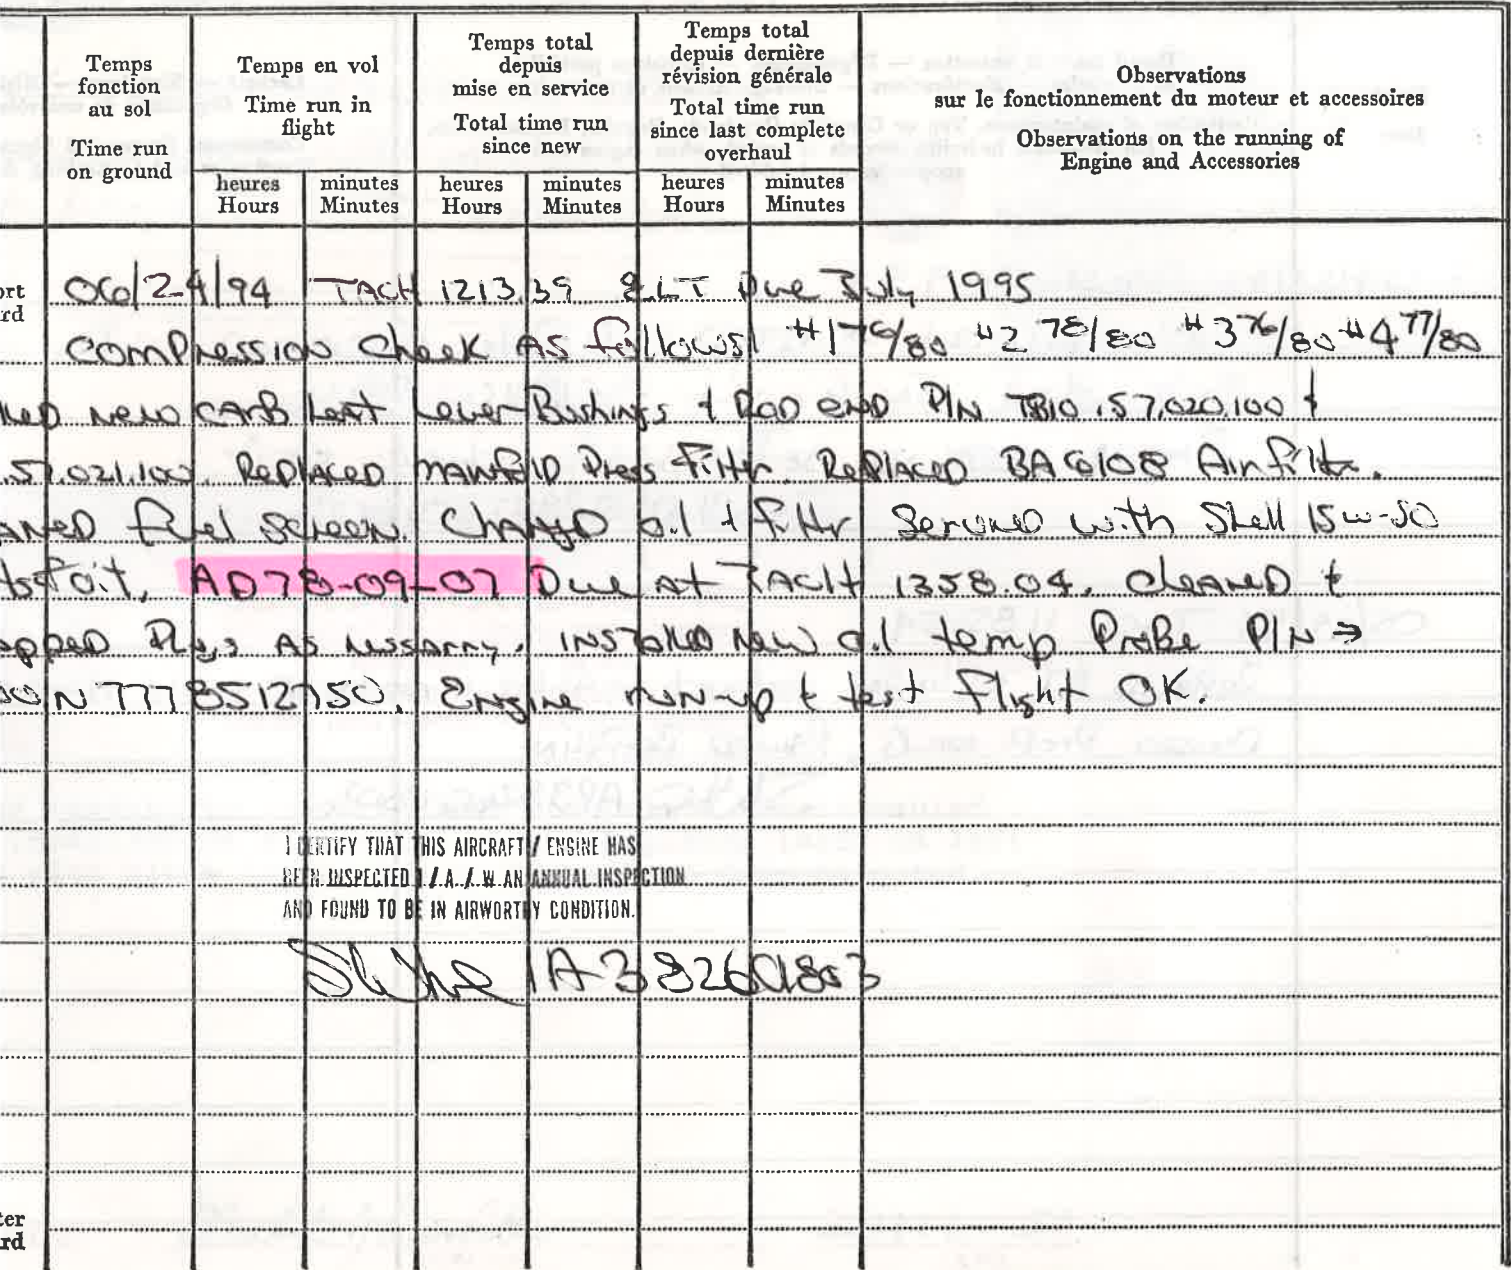 Temps fonction au sol
Time run on ground
Temps en vol
Time run in flight
heures Hours
minutes Minutes
Temps total depuis mise en service
Total time run since new
heures Hours
minutes Minutes
Temps total depuis dernière révision générale
Total time run since last complete overhaul
heures Hours
minutes Minutes
Observations
sur le fonctionnement du moteur et accessoires
Observations on the running of
Engine and Accessories
ort
rd
06/24/94 TACH 1213.39 ELT Due July 1995
Compression Check As follows #1 76/80 #2 78/80 #3 76/80 #4 77/80
new CARB Lever Bushings & Rod end P/N TB10.57.020.100 &
.57.021.100. Replaced manifold Press Filter. Replaced BA6108 Air filter.
aned fuel screen. Changed oil & filter Serviced with Shell 15w-50
AD78-09-07 Due at TACH 1358.04. Cleaned &
apped Plugs As . INSTALLED New oil temp Probe P/N →
N7778512750. Engine run-up & test flight OK.
I CERTIFY THAT THIS AIRCRAFT / ENGINE HAS
BEEN INSPECTED I / A / W AN ANNUAL INSPECTION
AND FOUND TO BE IN AIRWORTHY CONDITION.
IA
ter
rd